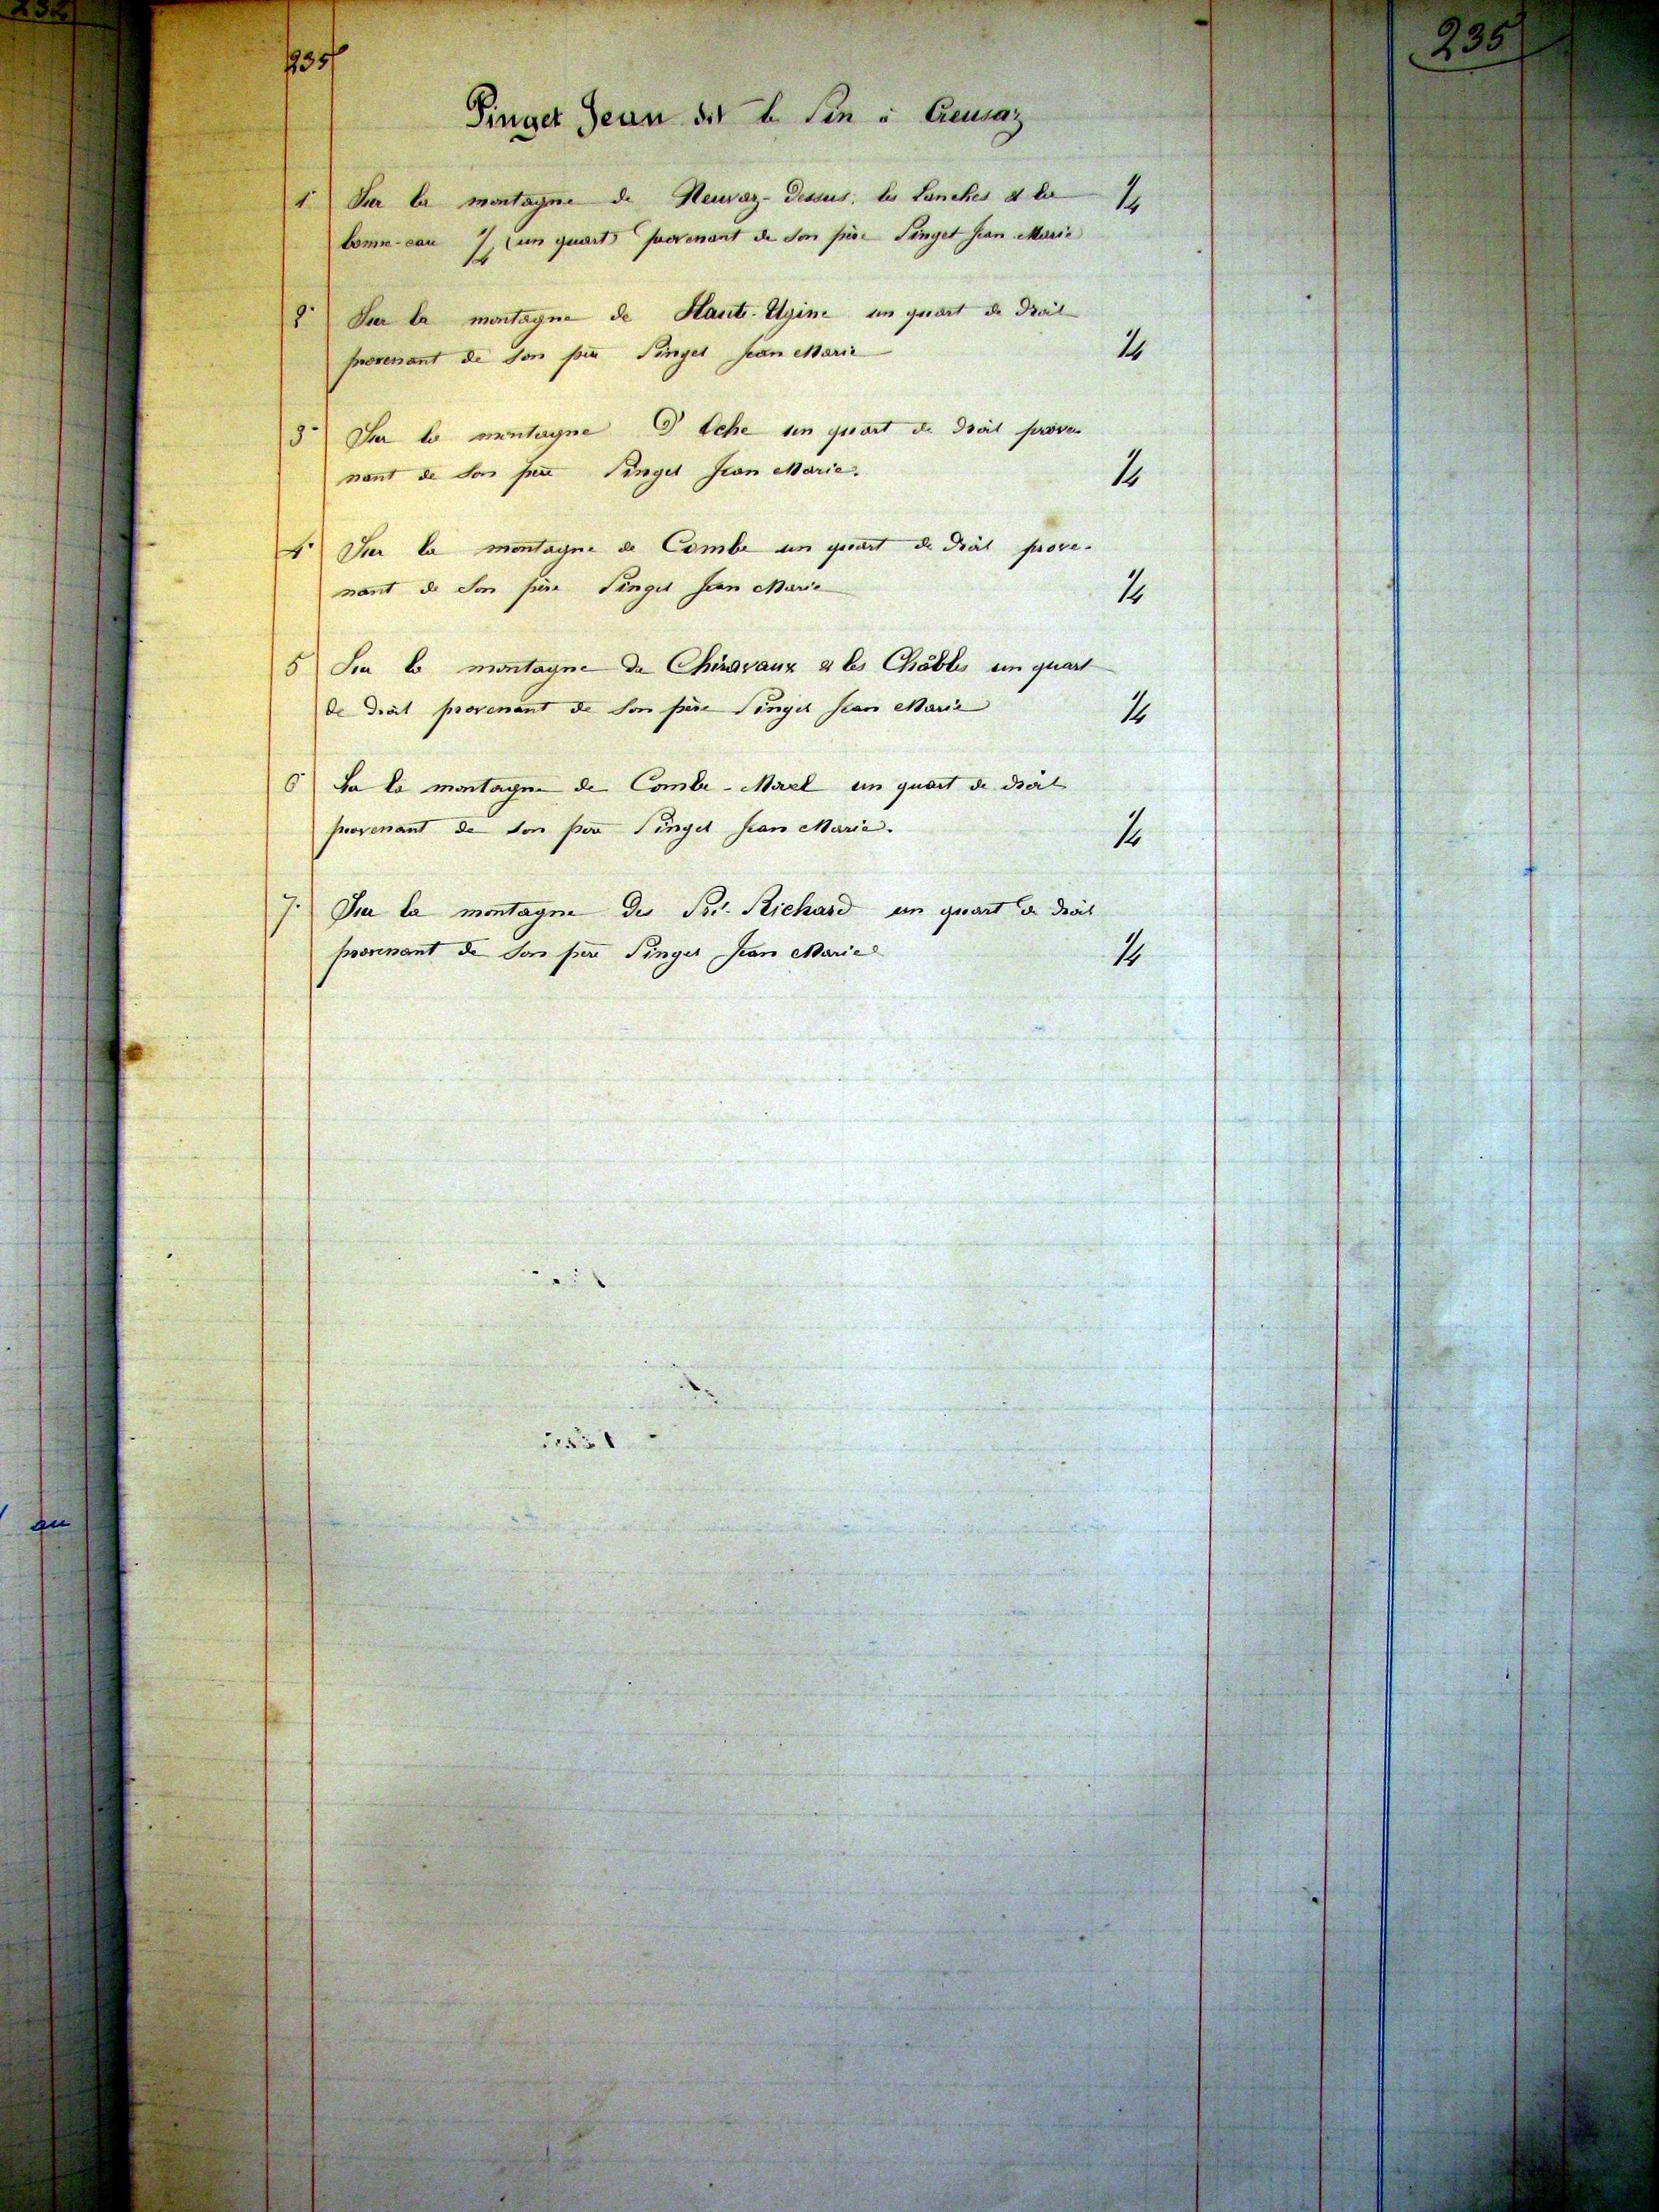 232
235
235
Pinget Jean dit le Pin à Creusaz
1° Sur la montagne de Neuvaz-Dessus, les Lanches & la 1/4
bonne-eau 1/4 (un quart) provenant de son père Pinget Jean Marie
2° Sur la montagne de Haute-Ugine un quart de droit
provenant de son père Pinget Jean Marie 1/4
3° Sur la montagne D'Oche un quart de droit prove-
nant de son père Pinget Jean Marie. 1/4
4° Sur la montagne de Combe un quart de droit prove-
nant de son père Pinget Jean Marie 1/4
5 Sur la montagne de Chiravaux & les Châbles un quart
de droit provenant de son père Pinget Jean Marie 1/4
6 Sur la montagne de Combe-Morel un quart de droit
provenant de son père Pinget Jean Marie. 1/4
7° Sur la montagne des Richard un quart de droit
provenant de son père Pinget Jean Marie 1/4
au